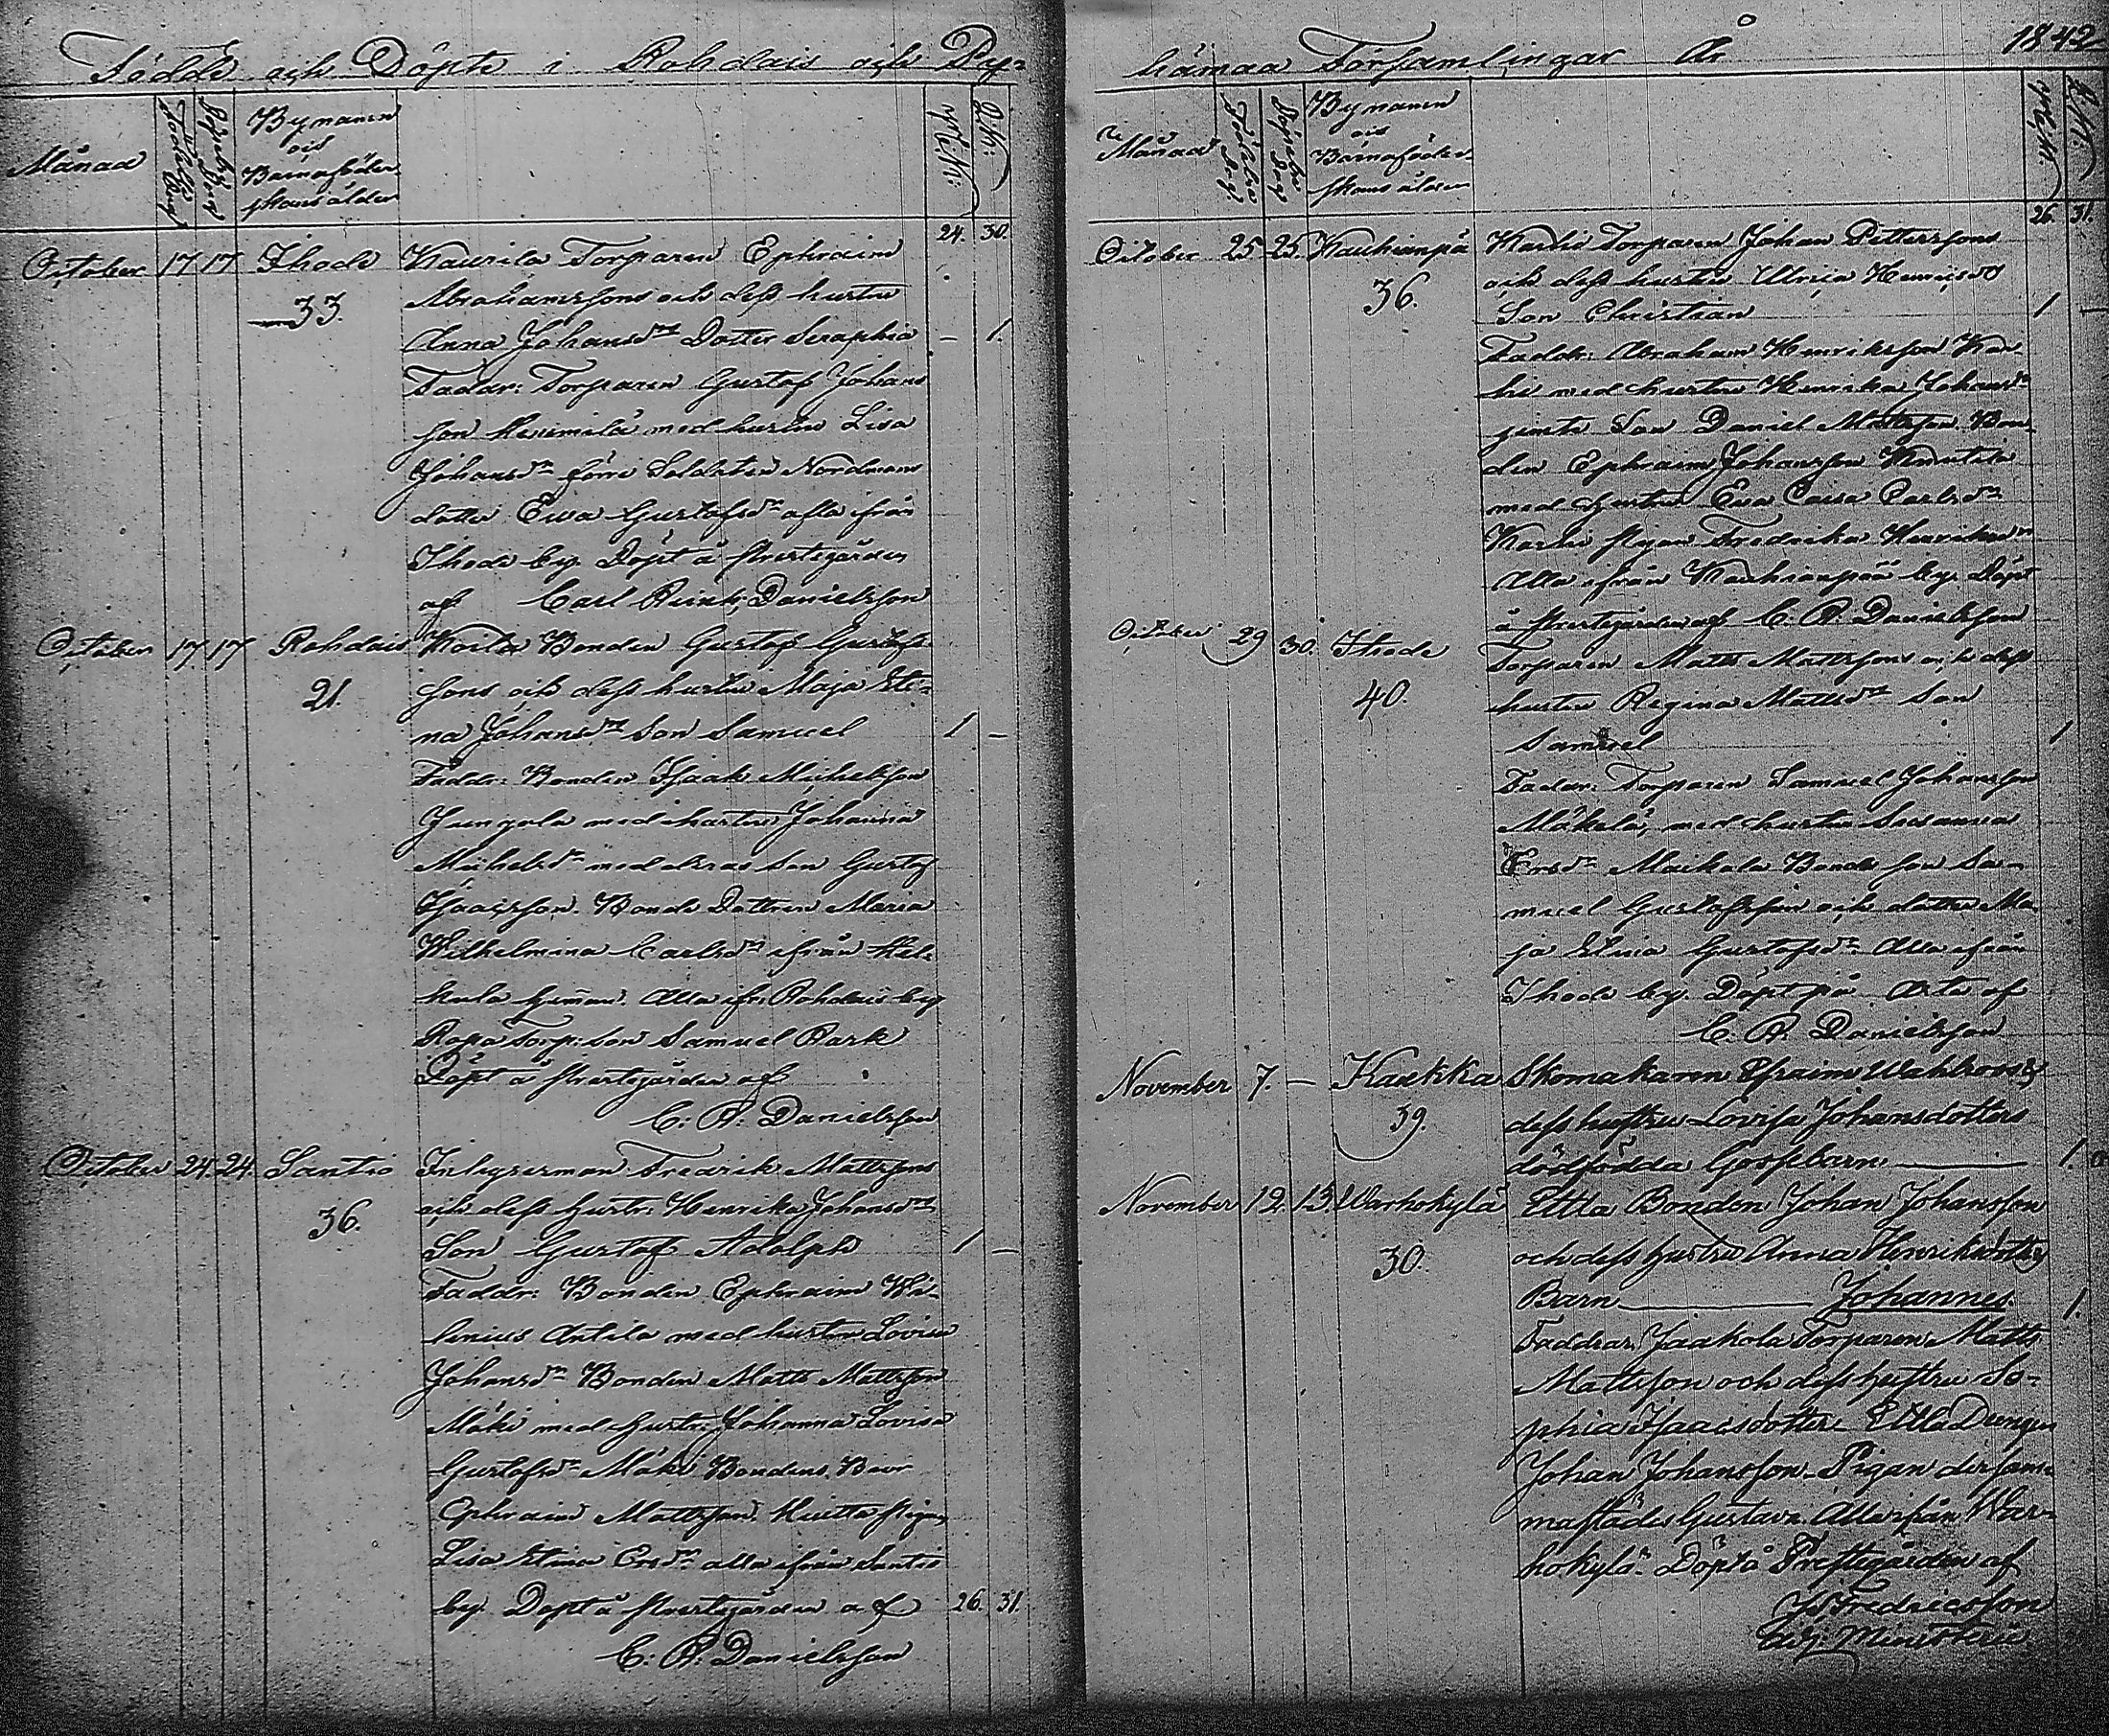 Födde och Döpte i Rohdais och Py=
Månad
Födelse Dag
Döpelse Dag
Bynamn
och
Barnaföder-
skans ålder
M:k:
Q:k:
24. 30.
October 17 17 Ihode Kaurila Torparen Ephraim
33. Abrahamssons och dess hustru
Anna Johansdr Dotter Seraphia – 1.
Faddr: Torparen Gustaf Johans
son med hustru Lisa
Johansdr förre Soldaten Nordmans
dotter Ewa Gustafsdr alla ifrån
Ihode by. Döpt å prestegården
af Carl Reinh: Danielsson
October 17 17 Rohdais Koila Bonden Gustaf Gustafs-
21. sons och dess hustru Maja Sti-
na Johansdr Son Samuel 1 –
Faddr: Bonden Isaak Michelsson
Jungola med hustru Johanna
Michelsdr med deras Son Gustaf
Isacsson. Bonde Dottren Maria
Wilhelmina Carlsdr ifrån Hel-
kula hemman. Alla ifr. Rohdais by
Rapa Torp: son Samuel Rask
Döpt å prestegården af
C: R: Danielsson
October 24 24. Santio Inhysesman Fredrik Mattssons
36. och dess hustr: Henrika Johansdr
Son Gustaf Adolph 1 –
Faddr: Bonden Ephraim Wi-
lenius Antila med hustru Lovisa
Johansdr Bonden Matts Mattsson
Mäki med hustr: Johanna Lovisa
Gustafsdr Mäki Bondens Bror
Ephraim Mattsson. Huitta pigan
Lisa Stina Ersdr alla ifrån Santio
by. Döpt å prestegården af 26. 31.
C: R: Danielsson
hämaa Församlingar År 1842
Månad
Födelse Dag
Döpelse Dag
Bynamn
och
Barnaföder-
skans ålder
M:k:
Q:k:
26. 31.
October 25 25. Kauhianpä Karhi Torparen Johan Petterssons
36. och dess hustru Ulrica Henricsdr
Son Christian 1 –
Faddr: Abraham Henriksson Kar-
hi med hustru Henrika Johansdr
jemte Son Daniel Mattsson. Bon-
den Ephraim Johansson
med hustru Ewa Caisa Carlsdr
Karhi pigan Fredrika Henriksdr
Alla ifrån Kauhianpää by. Döpt
å prestegården af C. R. Danielsson
October 29 30. Ihode Torparen Matts Mattssons och dess
40. hustru Regina Mattsdr Son
Samuel 1
Faddr: Torparen Samuel Johansson
Mäkelä, med hustru Susanna
Ersdr Maikola Bonde son Sa-
muel Gustafsson och dotter Ma-
ja Stina Gustafsdr. Alla ifrån
Ihode by. Döpt på Arte af
C. R. Danielsson
November 7. – Kaukka Skomakaren Efraim Wahlroos &
39. dess hustru Lovisa Johansdotters
dödfödda Gossebarn 1. 0
November 12. 13. Warhokylä Ettla Bonden Johan Johansson
30. och dess hustru Anna Henriksdotters
Barn Johannes. 1.
Faddrar: Jaakola Torparen Matts
Mattsson och dess hustru So-
phia Isaacsdotter – Ettla Drengen
Johan Johansson. Pigan dersam-
mastädes Gustava. Alla ifrån War-
hokylä. Döpt å Prestegården af
Js Fredricsson
adj. Ministerii